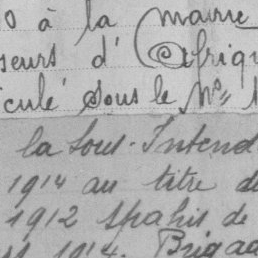 0 à la mairie
seurs d'Afriqu
culé sous le N°
la Sous-Intend
1914 au titre d
1912 spahis de
1914. Brigad